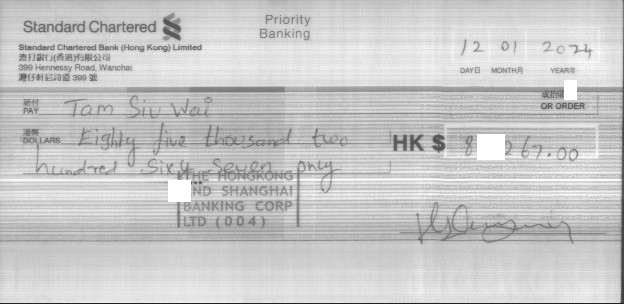 Standard Chartered
Priority
Banking
Standard Chartered Bank (Hong Kong) Limited
渣打銀行(香港)有限公司
399 Hennessy Road, Wanchai
灣仔軒尼詩道 399 號
12 01 2024
DAY日 MONTH月 YEAR年
祈付
PAY Tam Siu Wai
OR ORDER
港幣
DOLLARS Eighty five thousand two
hundred Sixty Seven only
HK $ 8 267.00
THE HONGKONG
AND SHANGHAI
BANKING CORP
LTD (004)